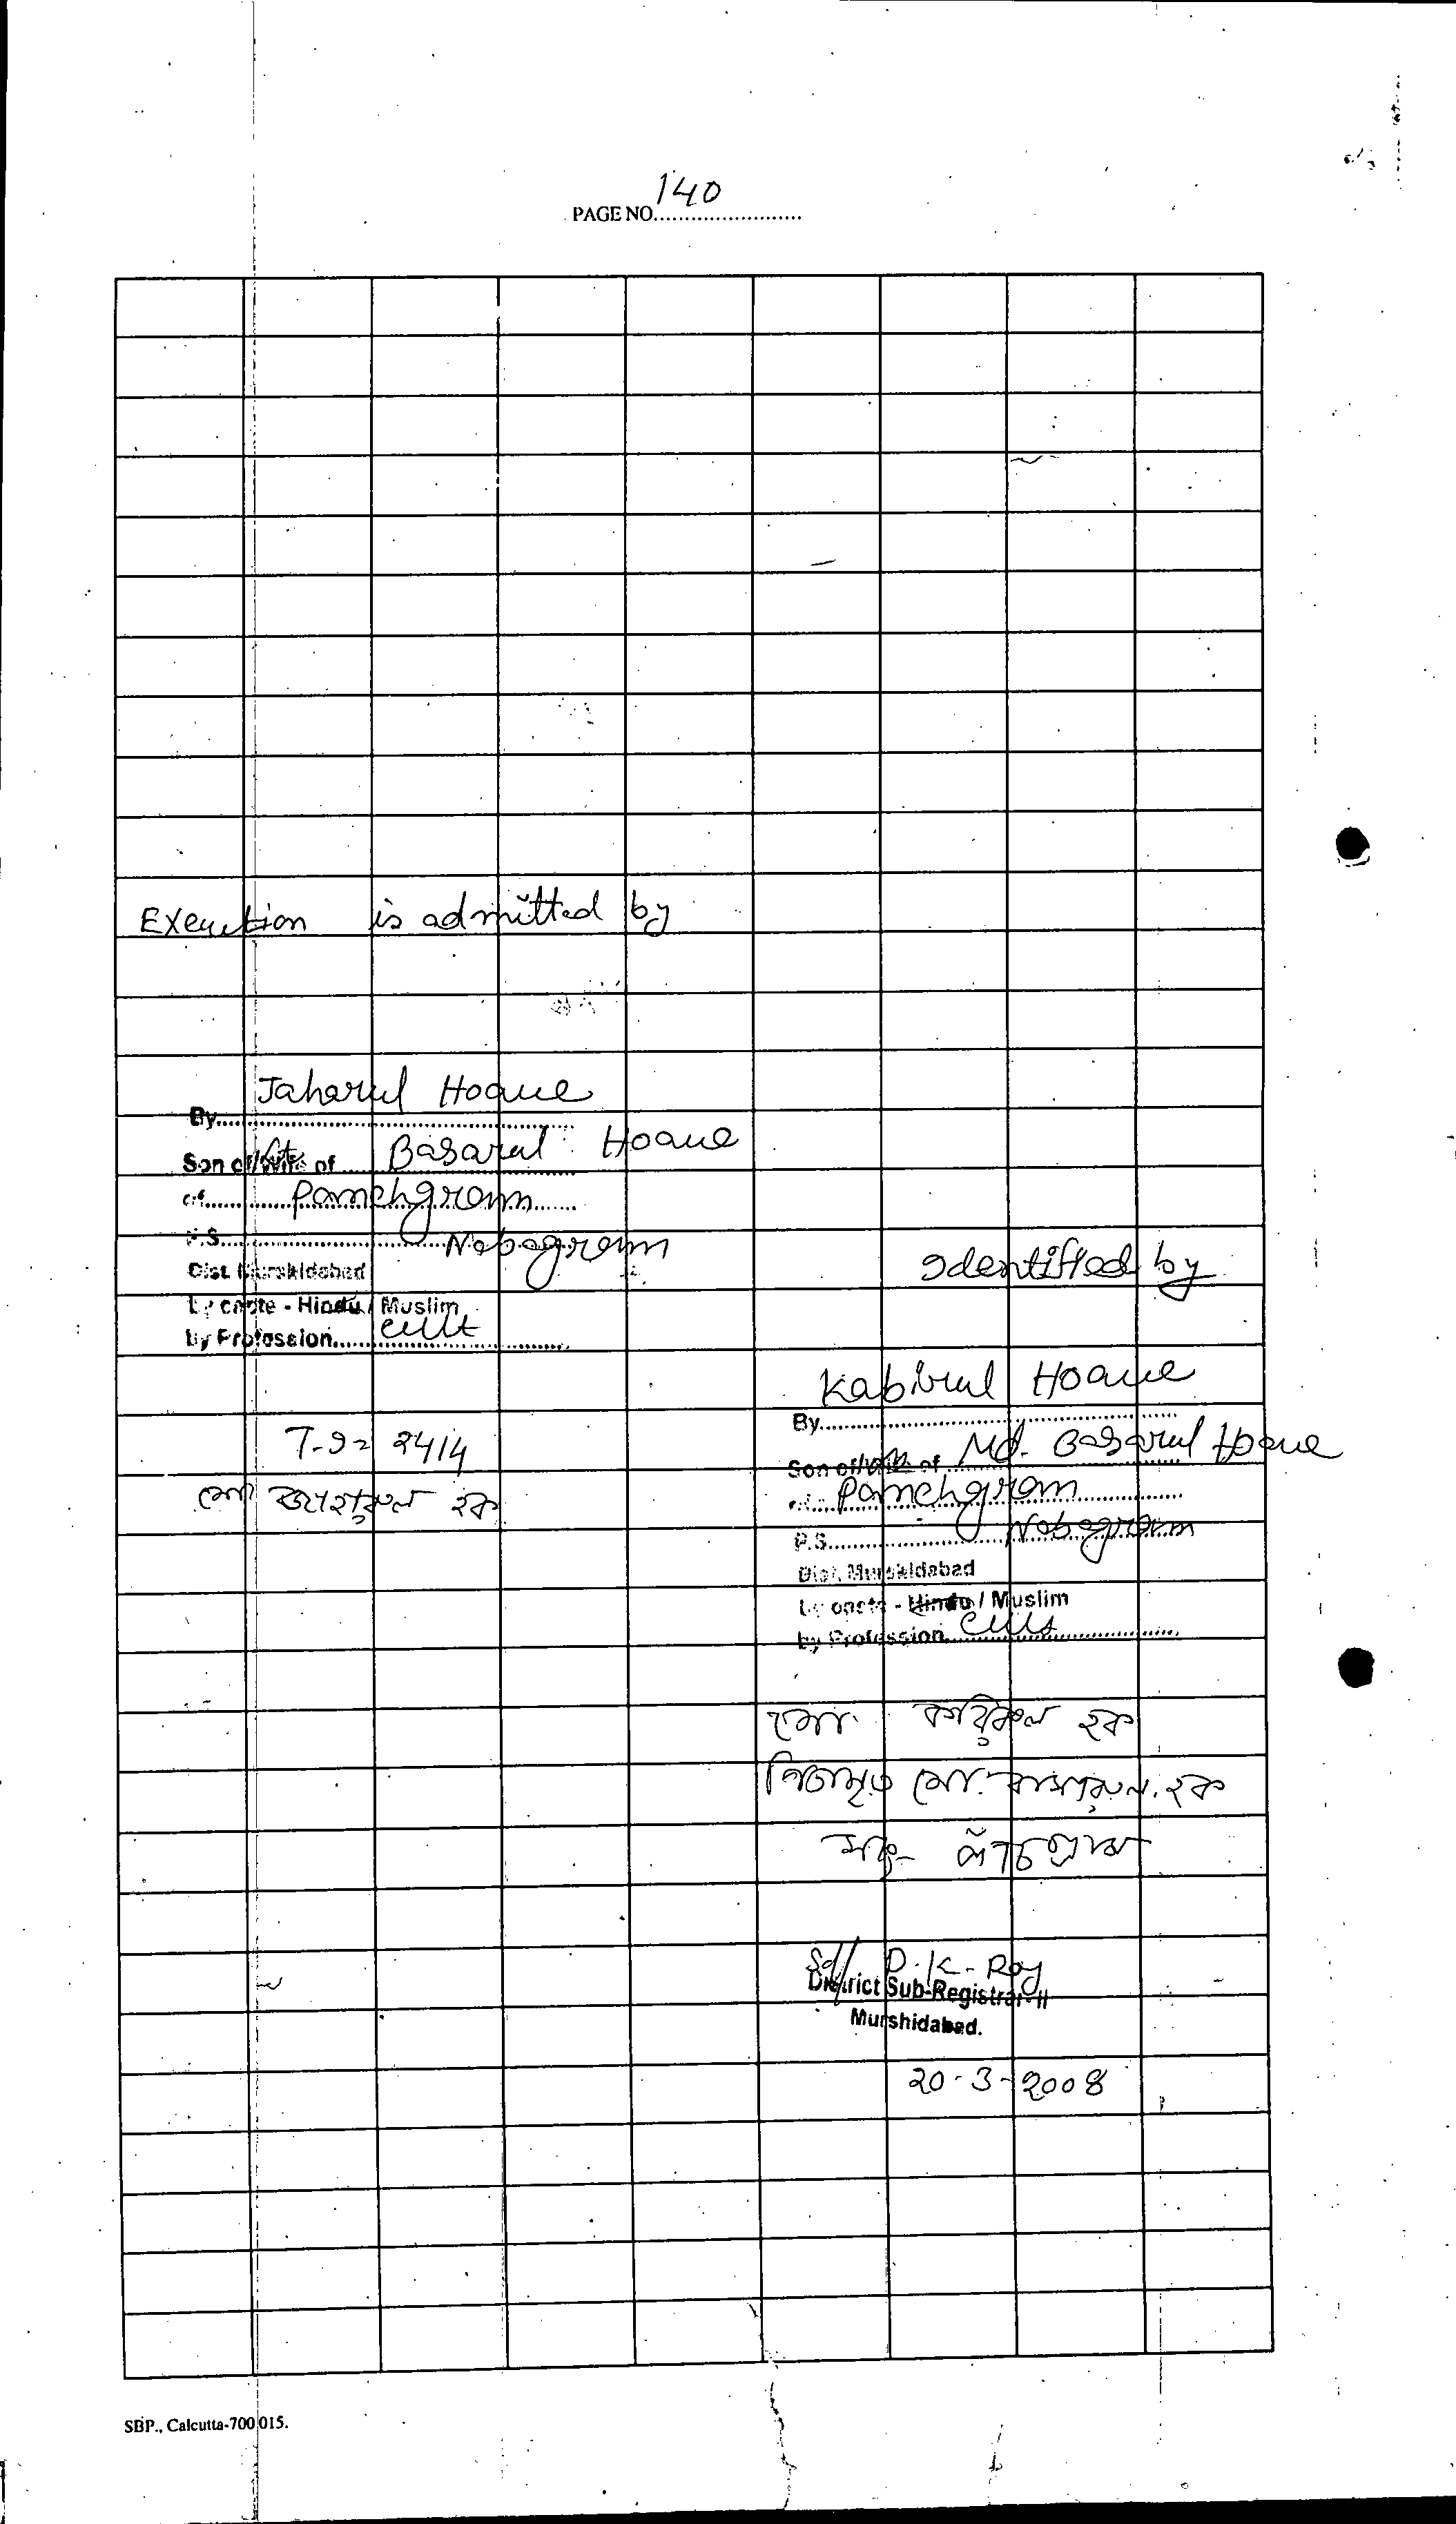 140
PAGE NO.........................
Execution is admitted by
Jaharul Hoque
By
Son of/Wife of Basarul Hoque
of Panchgram
P.S. Nabagram
Dist. Murshidabad
by caste - Hindu / Muslim
by Profession cult
Identified by
Kabirul Hoque
By
Son of/Wife of Md. Basarul Hoque
of Panchgram
P.S. Nabagram
Dist. Murshidabad
by caste - Hindu / Muslim
by Profession cult
2414
মোঃ জাহারুল হক
মোঃ কাবিরুল হক
মোঃ বাসারুল হক
সাং- পাঁচগ্রাম
Sd/ D.K. Roy
District Sub-Registrar-II
Murshidabad.
20-3-2008
SBP., Calcutta-700 015.